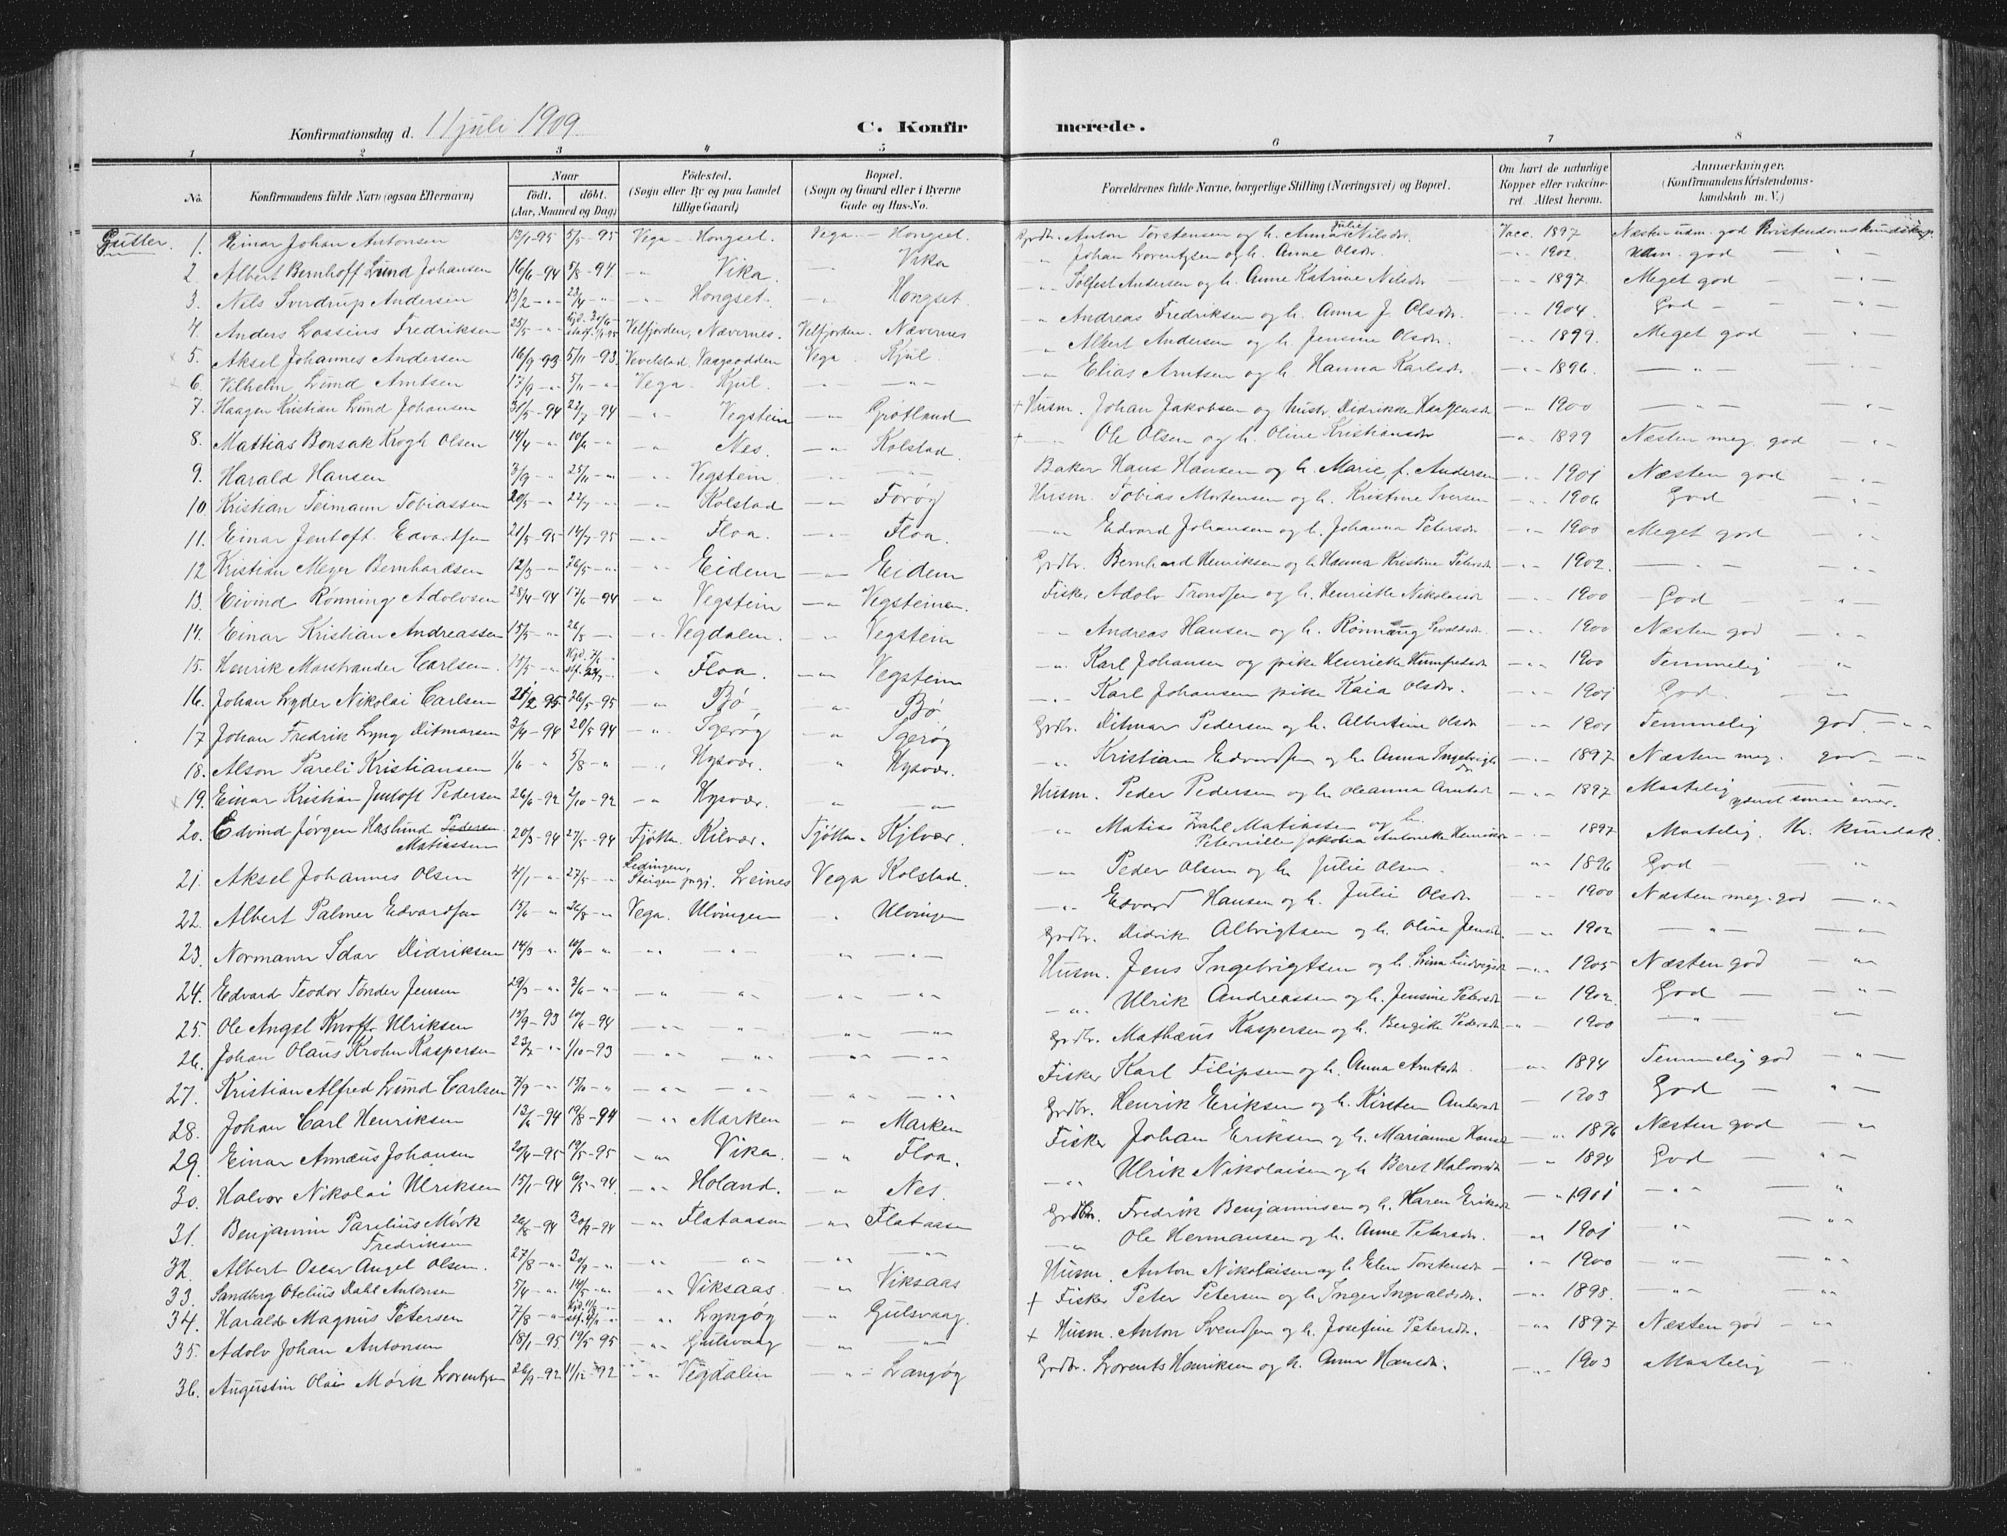 Konfirmationsdag d. 11 juli 1909
C. Konfir merede.
1 2 3 4 5 6 7 8
No. Konfirmandens fulde Navn (ogsaa Efternavn) Naar födt. döbt. (Aar, Maaned og Dag) Födested. (Sogn eller By og paa Landet tillige Gaard) Bopæl. (Sogn og Gaard eller i Byerne Gade og Hus-No. Forældrenes fulde Navne, borgerlige Stilling (Næringsvei) og Bopæl. Om havt de naturlige Kopper eller vakcineret. Attest herom. Anmærkninger. (Konfirmandens Kristendomskundskab m. V.)
Gutter. 1. Einar Johan Antonsen 13/1-95 5/5-95 Vega - Hongset. Vega - Hongset. Grdbr. Anton Torstensen og h. Anna Julie Nilsdr. Vacc. 1897 Næsten udm. god Kristendomskundskap.
2. Albert Bernhoff Lund Johansen 16/6-94 5/8-94 -"- Vika -"- Vika -"- Johan Lorentzsen og h. Anne Olsdr. -"- 1902 Udm. god - "
3. Nils Sverdrup Andersen 13/2 -"- 23/4 -"- -"- Hongset. -"- Hongset. -"- Solfest Andersen og h. Anne Katrine Nilsdr -"- 1897 Meget god - "
4. Anders Lossius Fredriksen 25/5 -"- Velfjorden, Nævernes. Velfjorden. Nævernes -"- Andreas Fredriksen og h. Anna J. Olsdr. -"- 1904 God -
5. Aksel Johannes Andersen 16/9-93 5/11-93 Vevelstad, Vaagsodden Vega - Kjul. -"- Albert Andersen og h. Jensine Olsdr. -"- 1899 Meget god
6. Vilhelm Lund Arntsen 17/9 -"- 5/11 -"- Vega - Kjul. -"- -"- -"- Elias Arntsen og h. Hanna Karlsdr. -"- 1896 -"-
7. Haagen Kristian Lund Johansen 31/5-94 22/7-94 -"- Vegstein -"- Grötland + Husm. Johan Jakobsen og hustr. Didrikke Haagensdr -"- 1900 -"-
8. Mattias Bonsak Krogh Olsen 14/4 -"- 10/6 -"- -"- Nes. -"- Kolstad. + -"- Ole Olsen og h. Oline Kristiansdr -"- 1899 Næsten meg. god -"-
9. Harald Hansen 3/9 -"- 25/11 -"- -"- Vegstein -"- -"- Baker Hans Hansen og h. Marie, f. Andersen -"- 1901 Næsten god -"-
10. Kristian Teimann Tobiassen 20/5 -"- 22/7 -"- -"- Kolstad -"- Foröy Husm. Tobias Mortensen og h. Kristine Iversen -"- 1906 God -"-
11. Einar Jentoft Edvardsen 21/5-95 14/7-95 -"- Floa. -"- Floa. -"- Edvard Johansen og h. Johanna Petersdr -"- 1900 Meget god -"-
12 Kristian Meyer Bernhardsen 12/3 -"- 26/5 -"- -"- Eidem -"- Eidem Grdbr. Bernhard Henriksen og h. Hanna Kristine Petersdr -"- 1902. -"-
13. Eivind Rönning Adolvsen 28/4-94 17/6-94 -"- Vegstein -"- Vegsteinen. Fisker Adolv Trondsen og h. Henrikke Nikolaisdr -"- 1900 God - -"-
14. Einar Kristian Andreassen 15/5 -"- 26/5 -"- -"- Vegdalen. -"- Vegstein -"- Andreas Hansen og h. Rönnaug -"- 1900 Næsten god -"-
15. Henrik Marstrander Carlsen. 15/5 -"- -"- Floa. -"- Vegstein -"- Karl Johansen og pike Henrikke Humfredsdr -"- 1900 Temmelig "
16. Johan Lyder Nikolai Carlsen 25/2 95 26/5-95 -"- Bö - -"- Bö -"- Karl Johansen pike Kaia Olsdr. -"- 1901 God. -"-
17 Johan Fredrik Lyng Ditmarsen 3/4-94 20/5 94 -"- Igeröy -"- Igeröy Grdbr. Ditmar Pedersen og h. Albertine Olsdr -"- 1901 Temmelig god -"-
18. Alson Pareli Kristiansen 1/6 -"- 5/8 -"- -"- Hysvær. " Hysvær. -"- Kristian Edvardsen og h. Anna Ingebrigtsdr -"- 1897 Næsten meg. god -"-
19. Einar Kristian Jentoft Pedersen 26/6-92 2/10-92 -"- Hysvær. " -"- Husm. Peder Pedersen og h. Oleanna Arntsdr -"- 1897 Maatelig
20. Edvind Jörgen Haslund Pedersen Matiassen 20/3-94 27/5-94 Tjötta. Kilvær. Tjötta. Kjlvær. " Matias Dahl Matiassen og h. Peternille Jakobia Antonette Henriksdr -"- 1897 Maatelig. Kr. kundsk.
21. Aksel Johannes Olsen 4/1 -"- 27/5 -"- Lødingen, Steigen prgj. Leines Vega Kolstad. -"- Peder Olsen og h. Julie Olsen. -"- 1896 God - "
22. Albert Palmer Edvardsen 15/6 -"- 26/8 -"- Vega. Ulvingen " Ulvingen -"- Edvard Hansen og h. Julie Olsdr. -"- 1900 Næsten meg. god -"-
23. Normann Idar Didriksen 14/3 -"- 10/6 -"- -"- -"- " -"- Grdbr. Didrik Albrigtsen og h. Oline Jensdr -"- 1902 -"- -"-
24. Edvard Teodor Tönder Jensen 29/3 -"- 3/6 -"- -"- -"- " -"- Husm. Jens Ingebrigtsen og h. Lina Ludvigsdr -"- 1905 Næsten god -"-
25. Ole Angel Knoff Ulriksen 15/9-93 10/6-94 -"- " " -"- -"- Ulrik Andreassen og h. Jensine Petersdr -"- 1902. God - -"-
26. Johan Olaus Krohn Kaspersen 23/7 -"- 1/10-93 -"- -"- " -"- Grdbr. Mathæus Kaspersen og h. Bergitte Pedersdr -"- 1900 -"- "
27. Kristian Alfred Lund Carlsen 7/9 -"- -"- -"- -"- -"- Fisker Karl Filipsen og h. Anna Arntsdr. -"- 1894 Temmelig god -"-
28. Johan Carl Henriksen 13/6-94 19/8-94 -"- Marken " Marken Grdbr. Henrik Eriksen og h. Kirsten Andersdr - 1903 God - "
29. Einar Annæus Johansen 20/4-95 19/5-95 -"- Vika. " Floa. Fisker Johan Eriksen og h. Marianne Hansdr -"- 1896 Næsten god -"-
30. Halvor Nikolai Ulriksen 15/1-94 6/5-94 -"- Holand. " Nes. -"- Ulrik Nikolaisen og h. Beret Halvorsdr -"- 1894 God - "
31. Benjamin Parelius Mörk Fredriksen 26/8-94 30/9-94 -"- Flataasen -"- Flataasen Grdbr. Fredrik Benjaminsen og h. Karen Eriksdr -"- 1901 -"- "
32. Albert Oscar Angel Olsen. 27/8 -"- 30/9 -"- -"- " " -"- -"- Ole Hermansen og h. Anne Petersdr. " 1901 " -"-
33. Sandberg Otelius Dahl Antonsen 5/4 -"- 14/5 -"- -"- Viksaas -"- Viksaas Husm. Anton Nikolaisen og h. Elen Torstensdr - 1900 -"- -"-
34. Harald Magnus Petersen 7/8 -"- -"- Lyngöy " Gulsvaag. + Fisker Peter Petersen og h. Inger Ingvaldsdr. -"- 1898. -"- "
35. Adolv Johan Antonsen 18/1-95 19/5-95 -"- Gulsvaag " " + Husm. Anton Svendsen og h. Josefine Petersdr. -"- 1897 Næsten god -"-
36. Augustin Olai Mörk Lorentzen 26/9-92 11/12-92 -"- Vegdalen -"- Langöy Grdbr. Lorents Henriksen og h. Anna Hansdr. -"- 1903 Maatelig -"-